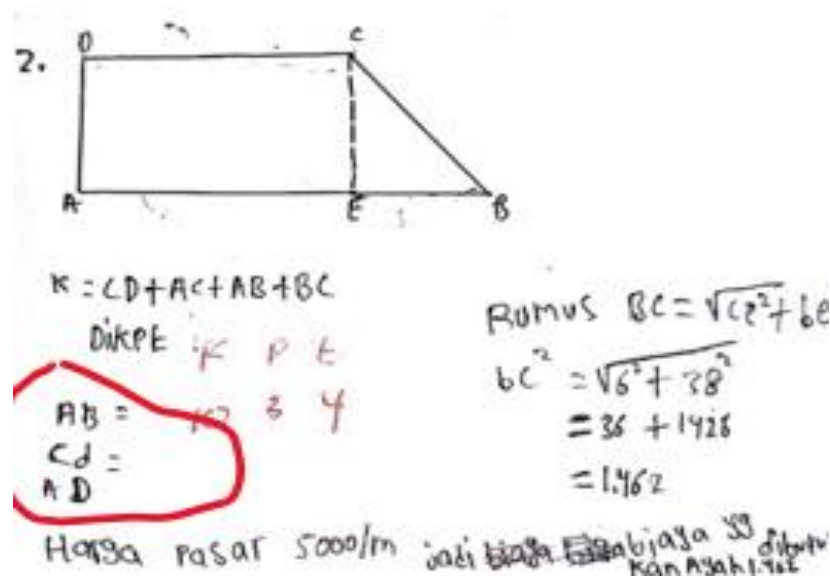 2.
D C
A E B
K = CD+AC+AB+BC
Dikpt
K P E
3 4
AB =
Cd =
AD
Rumus BC = √CE²+be
bc² = √6²+38²
= 36 + 1426
= 1.462
Harga pasar 5000/m jadi biaya yg
kan Ayah 1.462